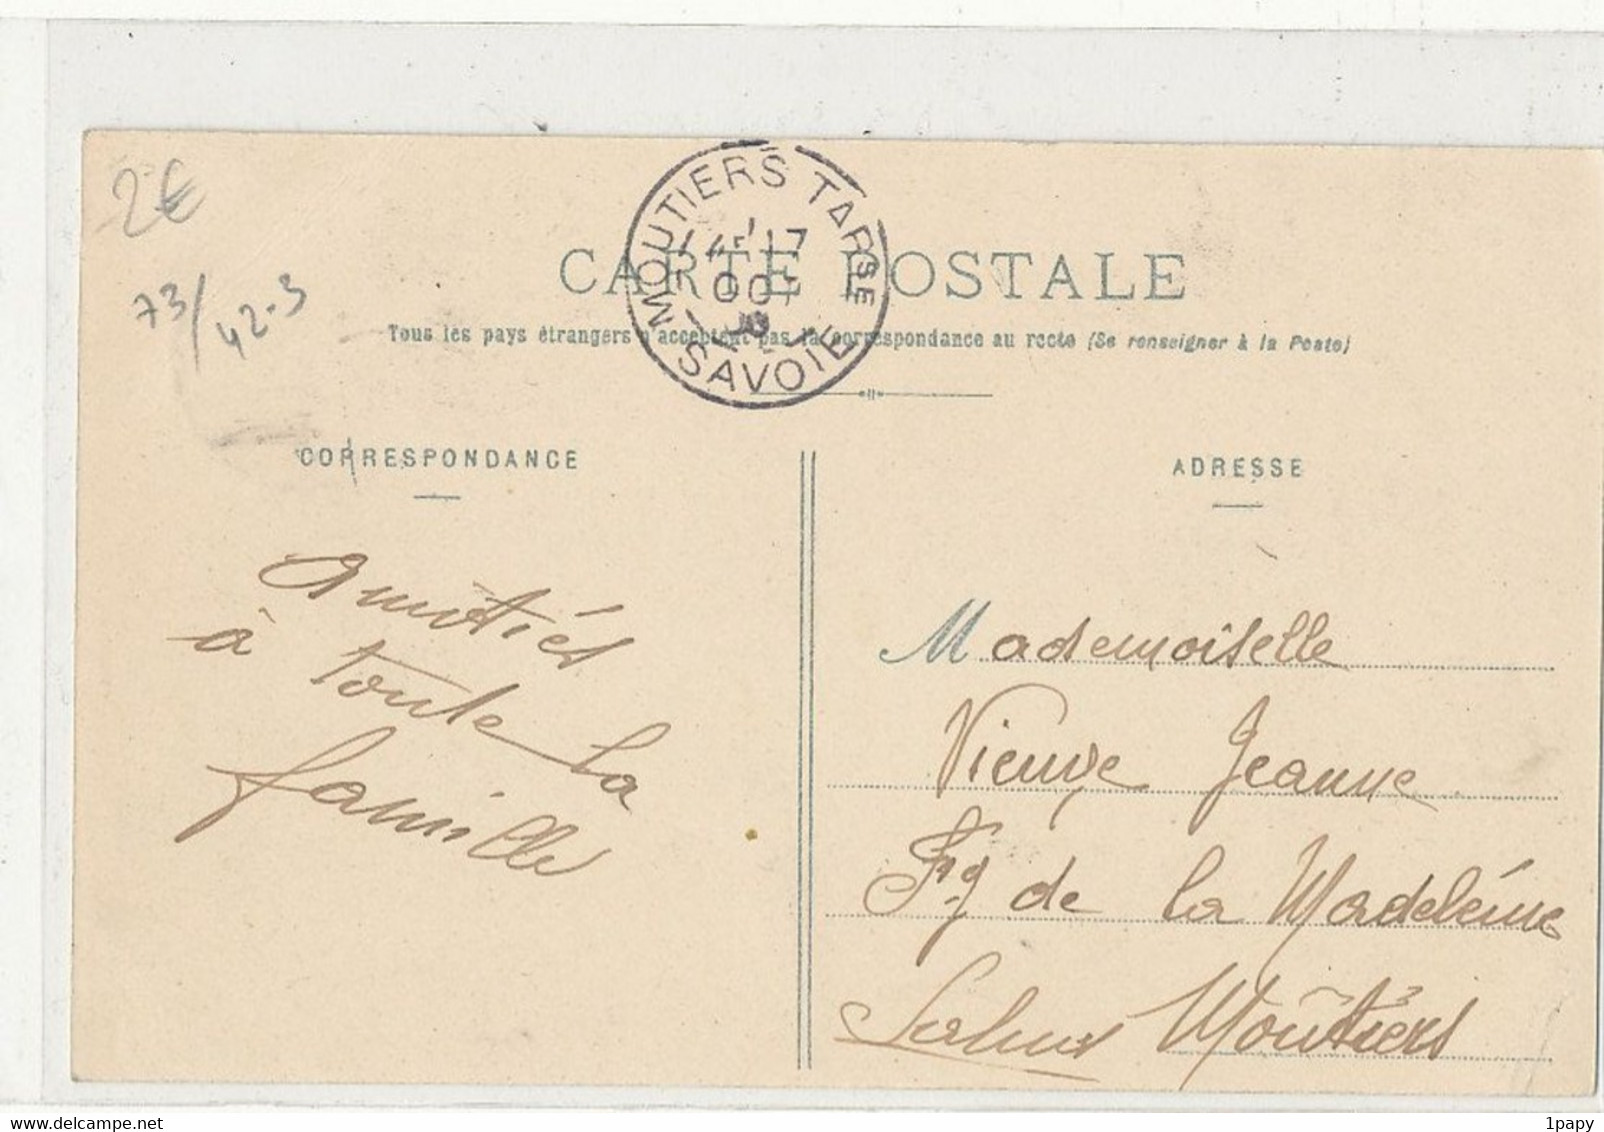 2€
73/
42-3
MOUTIERS TARSE
SAVOIE
CARTE POSTALE
Tous les pays étrangers n'acceptent pas la correspondance au recto (Se renseigner à la Poste)
CORRESPONDANCE
ADRESSE
Amitiés
à toute la
famille
Mademoiselle
Jeanne
Fg de la Madeleine
Salins Moûtiers
1papy